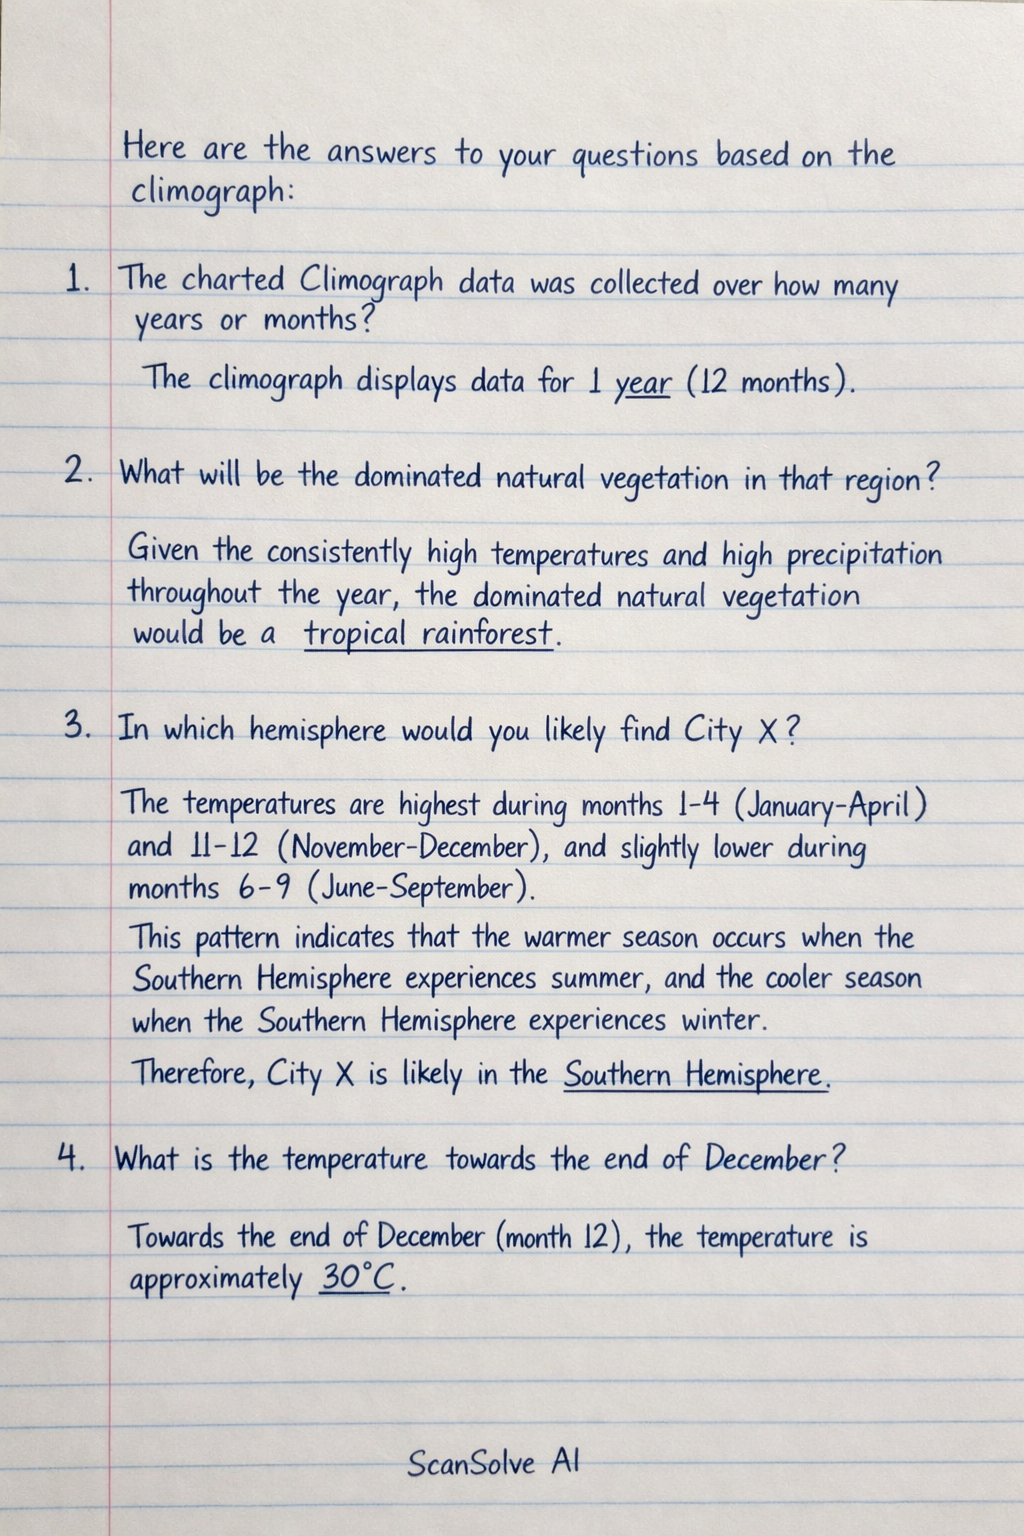 Here are the answers to your questions based on the
climograph:
1. The charted Climograph data was collected over how many
years or months?
The climograph displays data for 1 year (12 months).
2. What will be the dominated natural vegetation in that region?
Given the consistently high temperatures and high precipitation
throughout the year, the dominated natural vegetation
would be a tropical rainforest.
3. In which hemisphere would you likely find City X?
The temperatures are highest during months 1-4 (January-April)
and 11-12 (November-December), and slightly lower during
months 6-9 (June-September).
This pattern indicates that the warmer season occurs when the
Southern Hemisphere experiences summer, and the cooler season
when the Southern Hemisphere experiences winter.
Therefore, City X is likely in the Southern Hemisphere.
4. What is the temperature towards the end of December?
Towards the end of December (month 12), the temperature is
approximately 30°C.
ScanSolve AI